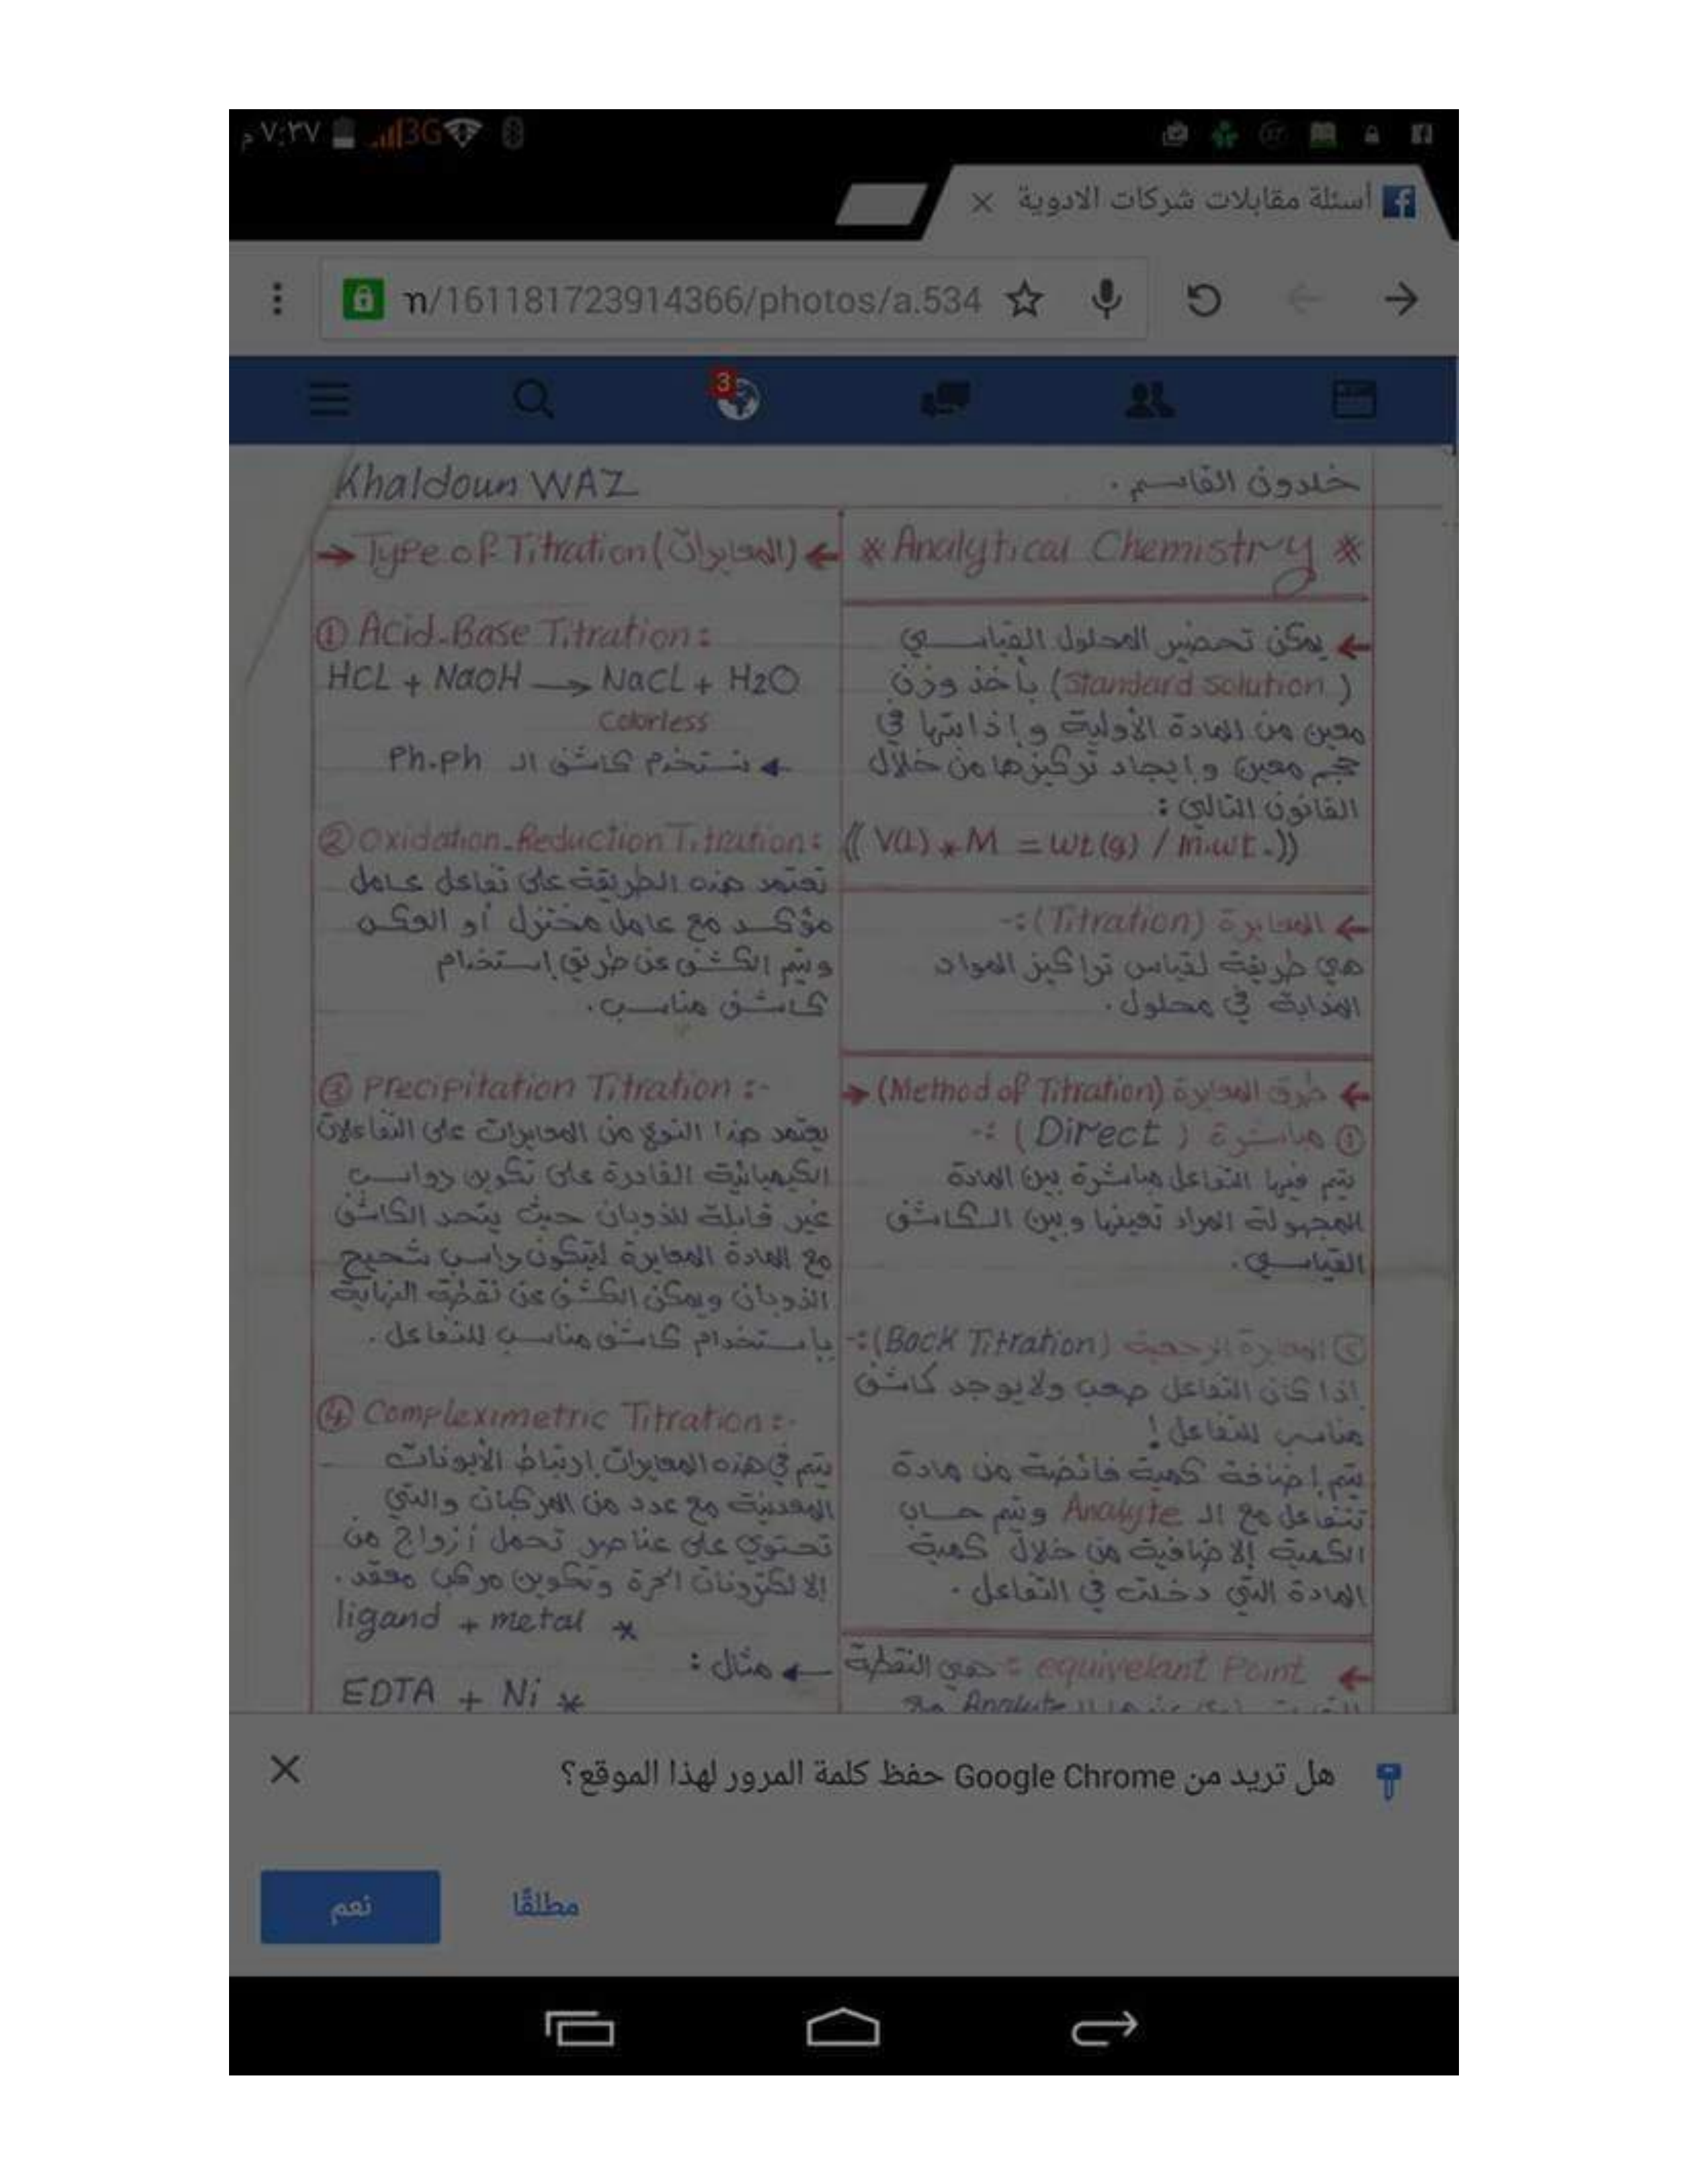 ٧:٣٧ م
3G
أسئلة مقابلات شركات الادوية
m/161181723914366/photos/a.534
3
Khaldoun WAZ
خلدون القاسم .
* Analytical Chemistry *
← يمكن تحضير المحلول القياسي
(Standard solution) بأخذ وزن
معين من المادة الأولية و إذابتها في
حجم معين و إيجاد تركيزها من خلال
القانون التالي :
(( V(L) * M = wt(g) / m.wt. ))
← المعايرة (Titration) :-
هي طريقة لقياس تراكيز المواد
المذابة في محلول .
← طرق المعايرة (Method of Titration) →
① مباشرة ( Direct ) :-
يتم فيها التفاعل مباشرة بين المادة
المجهولة المراد تعينها وبين الكاشف
القياسي .
② المعايرة الرجعية (Back Titration) :-
إذا كان التفاعل صعب ولا يوجد كاشف
مناسب للتفاعل !
يتم إضافة كمية فائضة من مادة
تتفاعل مع الـ Analyte ويتم حساب
الكمية الإضافية من خلال كمية
المادة التي دخلت في التفاعل .
← equivelant Point :- هي النقطة
الـ Analyte مع
→ Type of Titration (المعايرات) ←
① Acid-Base Titration :
HCL + NaOH → NaCL + H2O
Colorless
◄ نستخدم كاشف الـ Ph.ph
② Oxidation-Reduction Titration :
تعتمد هذه الطريقة على تفاعل عامل
مؤكسد مع عامل مختزل أو العكس
ويتم الكشف عن طريق إستخدام
كاشف مناسب .
③ Precipitation Titration :-
يعتمد هذا النوع من المعايرات على التفاعلات
الكيميائية القادرة على تكوين رواسب
غير قابلة للذوبان حيث يتحد الكاشف
مع المادة المعايرة ليتكون راسب شحيح
الذوبان ويمكن الكشف عن نقطة النهاية
بإستخدام كاشف مناسب للتفاعل .
④ Compleximetric Titration :-
يتم في هذه المعايرات إرتباط الأيونات
المعدنية مع عدد من المركبات والتي
تحتوي على عناصر تحمل أزواج من
الإلكترونات الحرة وتكوين مركب معقد .
ligand + metal *
← مثال :
EDTA + Ni *
هل تريد من Google Chrome حفظ كلمة المرور لهذا الموقع؟
مطلقًا
نعم